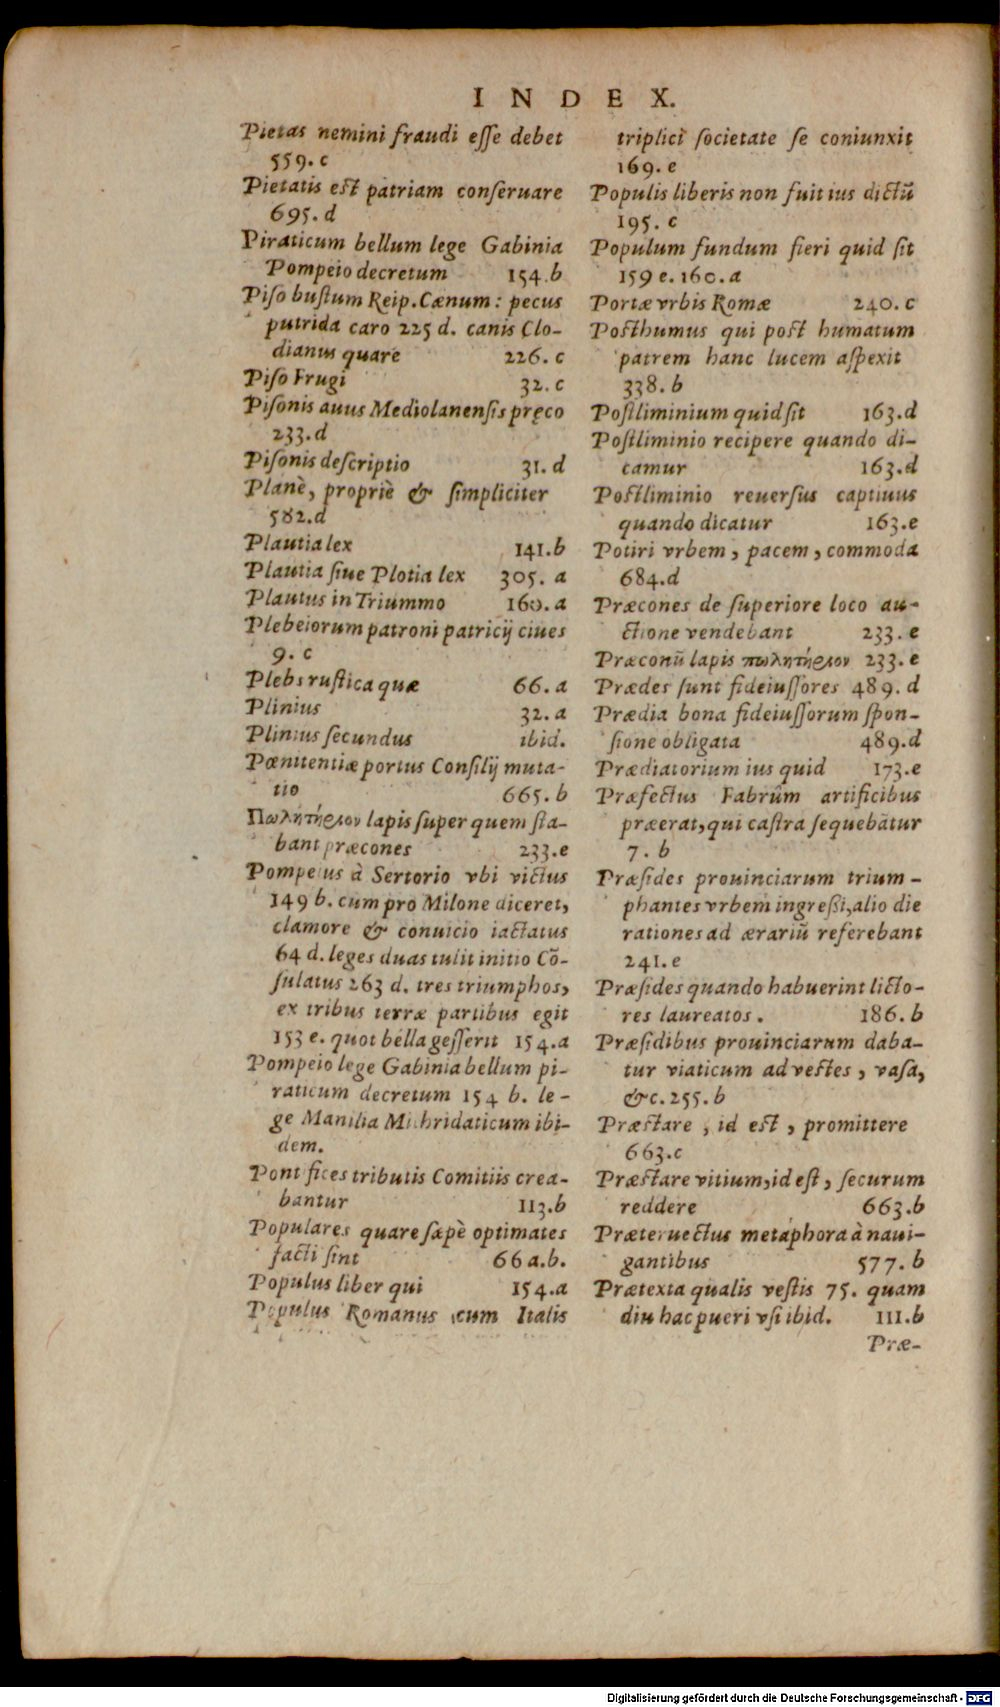 INDEX.
Pietas nemini fraudi esse debet
559. c
Pietatis est patriam conseruare
695. d
Piraticum bellum lege Gabinia
Pompeio decretum 154. b
Piso bustum Reip. Cænum: pecus
putrida caro 225 d. canis Clo-
dianus quare 226. c
Piso Frugi 32. c
Pisonis auus Mediolanensis pręco
233. d
Pisonis descriptio 31. d
Planè, propriè & simpliciter
582. d
Plautia lex 141. b
Plautia siue Plotia lex 305. a
Plautus in Triummo 160. a
Plebeiorum patroni patricij ciues
9. c
Plebs rustica quæ 66. a
Plinius 32. a
Plinius secundus ibid.
Pœnitentiæ portus Consilij muta-
tio 665. b
Πωλητήριον lapis super quem sta-
bant præcones 233. e
Pompeius à Sertorio vbi victus
149 b. cum pro Milone diceret,
clamore & conuicio iactatus
64 d. leges duas tulit initio Cō-
sulatus 263 d. tres triumphos,
ex tribus terræ partibus egit
153 e. quot bella gesserit 154. a
Pompeio lege Gabinia bellum pi-
raticum decretum 154 b. le-
ge Manilia Mithridaticum ibi-
dem.
Pontifices tributis Comitiis crea-
bantur 113. b
Populares quare sæpè optimates
facti sint 66 a. b.
Populus liber qui 154. a
Populus Romanus cum Italis
triplici societate se coniunxit
169. e
Populis liberis non fuit ius dictū
195. c
Populum fundum fieri quid sit
159 e. 160. a
Portæ vrbis Romæ 240. c
Posthumus qui post humatum
patrem hanc lucem aspexit
338. b
Postliminium quid sit 163. d
Postliminio recipere quando di-
camur 163. d
Postliminio reuersus captiuus
quando dicatur 163. e
Potiri vrbem, pacem, commoda
684. d
Præcones de superiore loco au-
ctione vendebant 233. e
Præconū lapis πωλητήριον 233. e
Prædes sunt fideiussores 489. d
Prædia bona fideiussorum spon-
sione obligata 489. d
Prædiatorium ius quid 173. e
Præfectus Fabrûm artificibus
præerat, qui castra sequebātur
7. b
Præsides prouinciarum trium-
phantes vrbem ingreßi, alio die
rationes ad ærariū referebant
241. e
Præsides quando habuerint licto-
res laureatos. 186. b
Præsidibus prouinciarum daba-
tur viaticum ad vestes, vasa,
&c. 255. b
Præstare, id est, promittere
663. c
Præstare vitium, id est, securum
reddere 663. b
Præteruectus metaphora à naui-
gantibus 577. b
Prætexta qualis vestis 75. quam
diu hac pueri vsi ibid. 111. b
Præ-
Digitalisierung gefördert durch die Deutsche Forschungsgemeinschaft - DFG